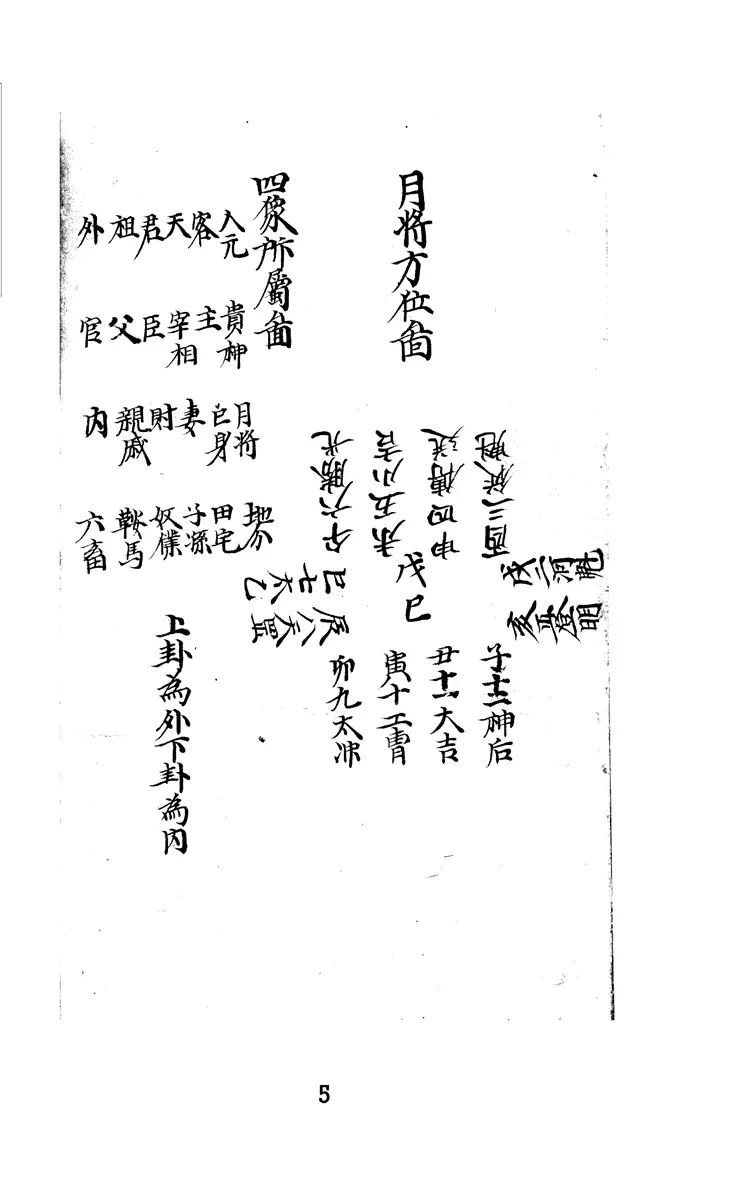 月将方位啚
酉三從魁
申四傳送
未五小吉
午六勝光
戌二河魁
亥正登明
戊己
巳七太乙
辰八天罡
子十二神后
丑十一大吉
寅十工曹
卯九太冲
四象所屬啚
人元 貴神 月将 地分
客 主 己身 田宅
天 宰相 妻 子孫
君 臣 財 奴僕
祖 父 親戚 鞍馬
外 官 内 六畜
上卦為外下卦為内
5